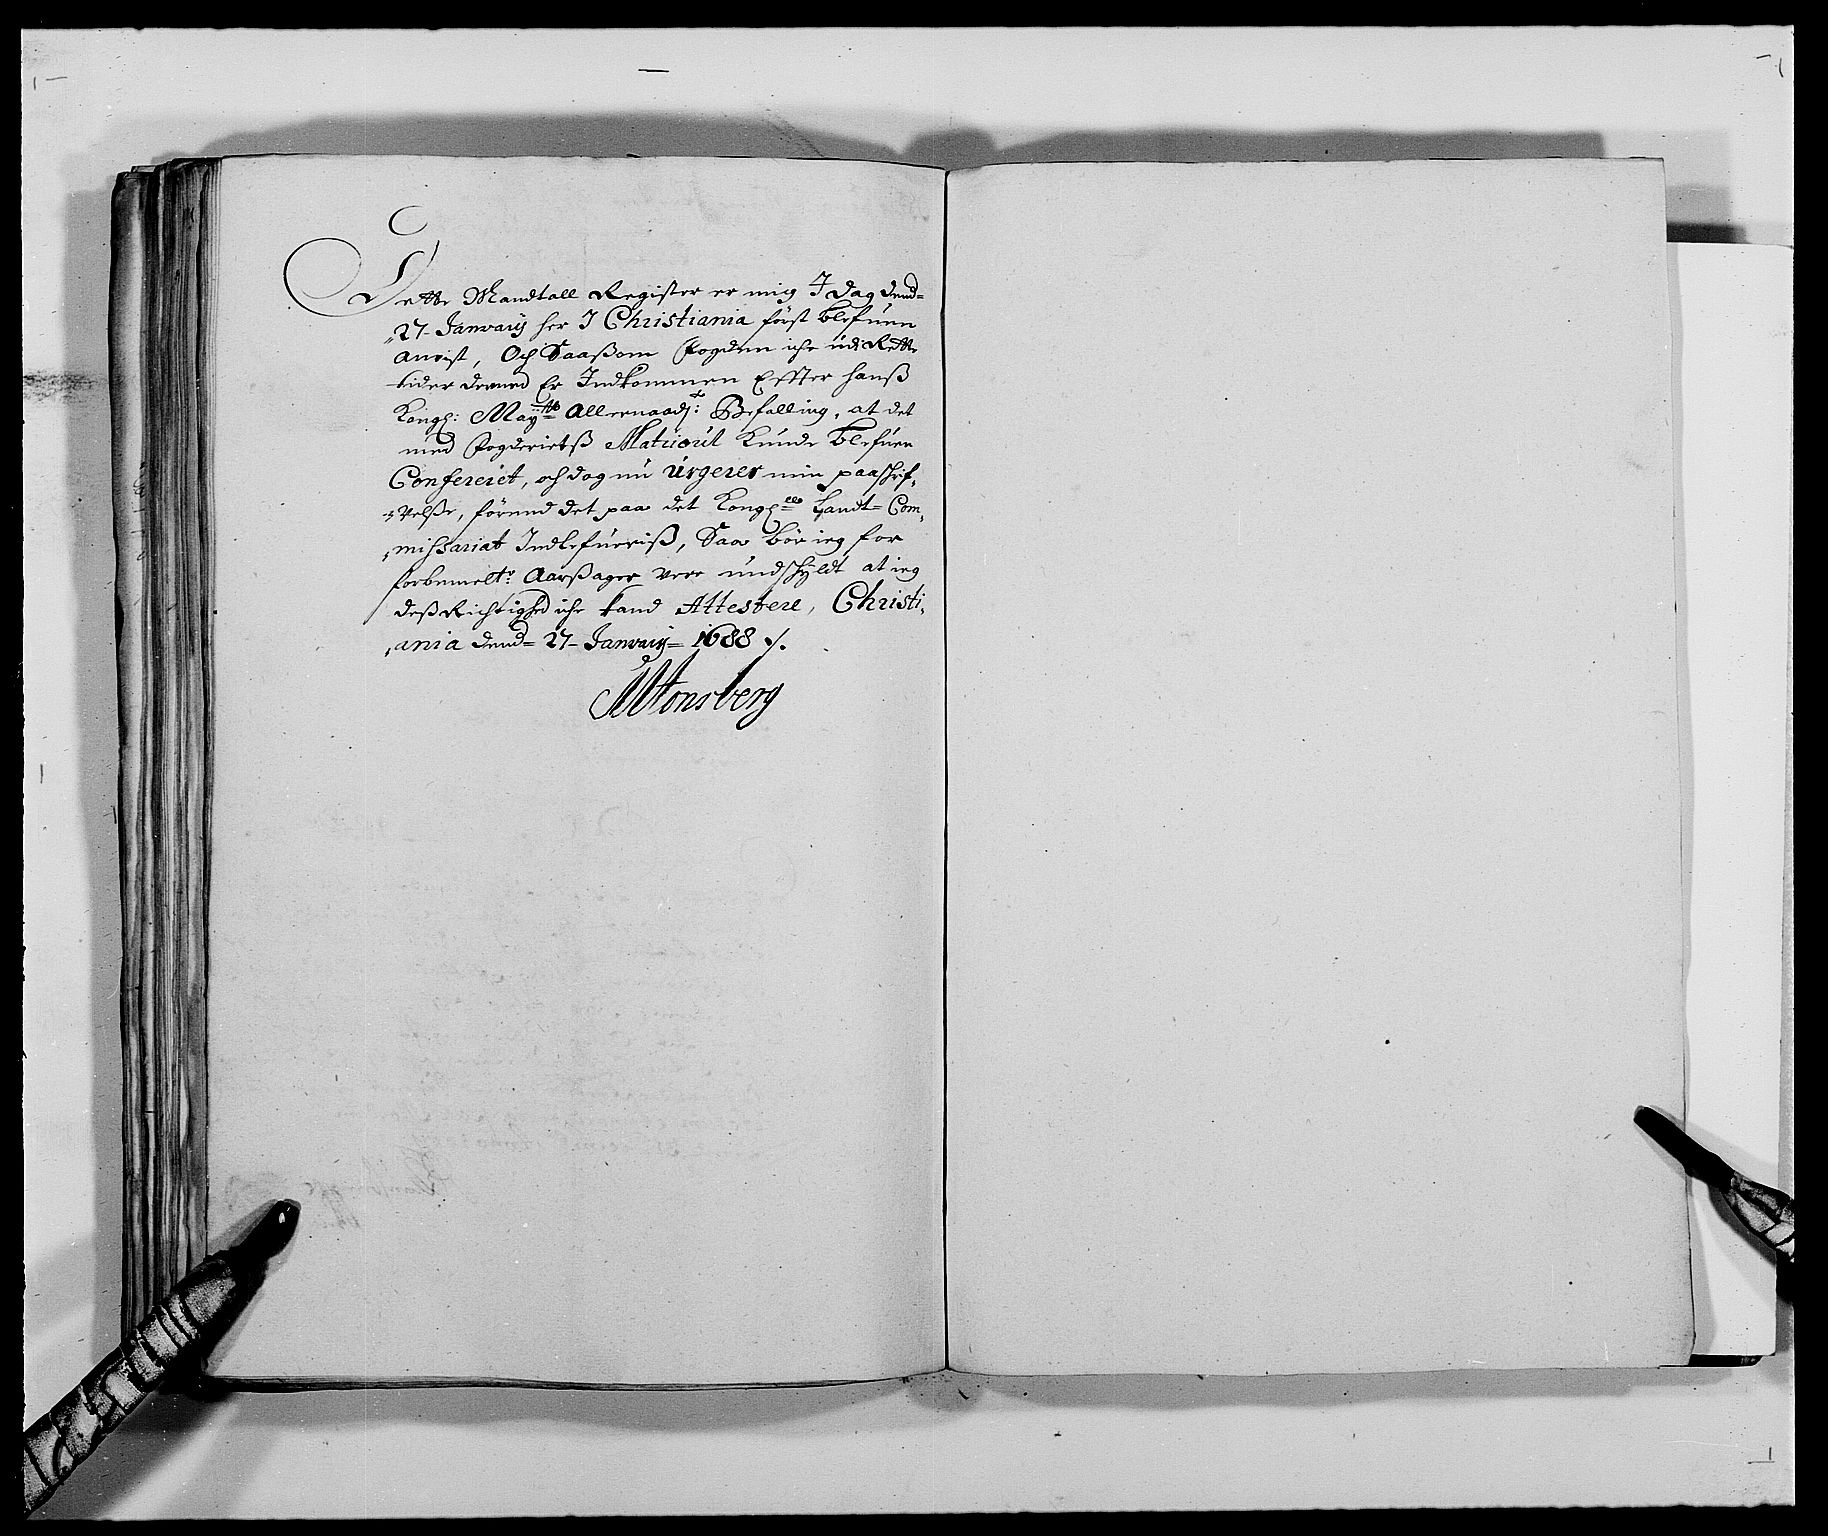 Dette Mandtall Register er mig I dag dend=
27 Januarij her I Christiania först blefuen
anvist, Och Saaßom fogden iche udi Rette
tider dermed Er Indkommen Effter hanß
Kongl: May:tts allernaadst: Befalling, at det
med fogderietß Matricul kunde blefuen
Confereret, och dog nu urgerer min paaschrif,
velße, förend det paa det Kongl:lle Landt= Com,
missariat Indlefueriß, Saa bör ieg for
forbemelte Aarßager vere undschyldt at ieg
deß Richtighed iche kand Attestere, Christi,
ania dend= 27 Januarij= 1688 ./.
MTonsberg